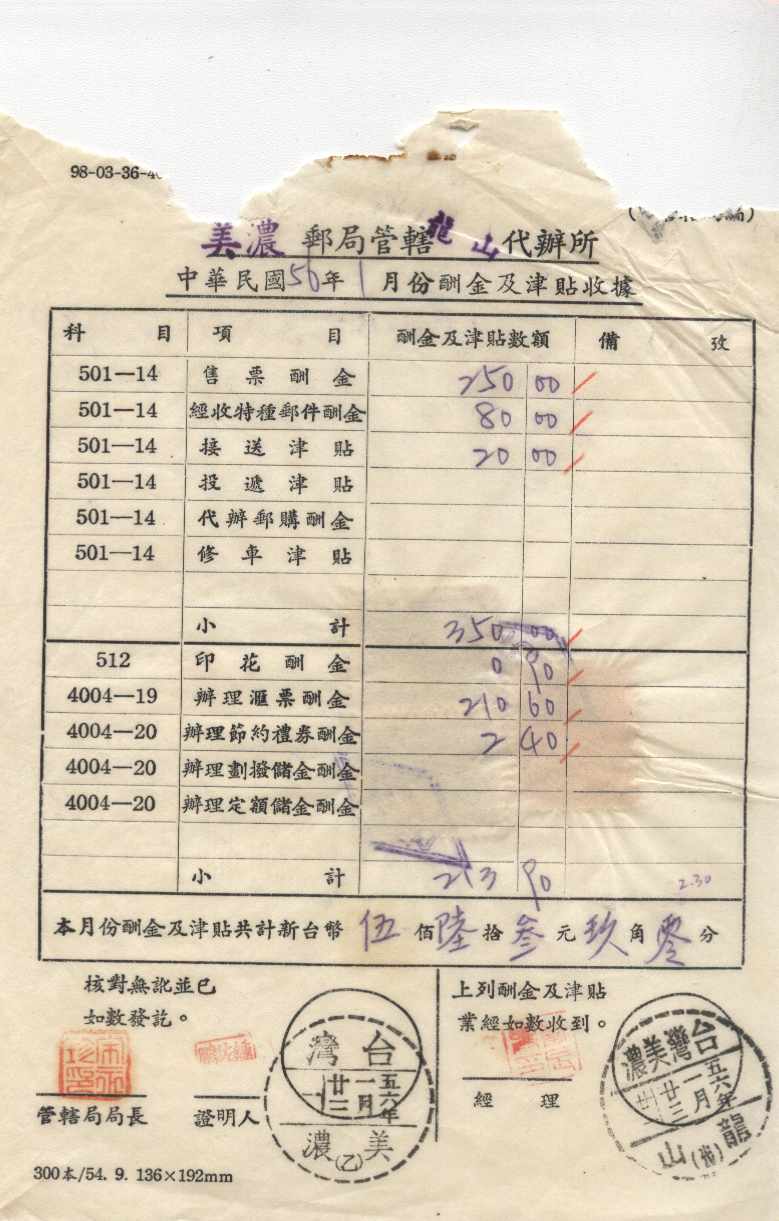 98-03-36-4
美濃郵局管轄龍山代辦所
中華民國56年1月份酬金及津貼收據
科目 項目 酬金及津貼數額 備攷
501—14 售票酬金 250 00
501—14 經收特種郵件酬金 80 00
501—14 接送津貼 20 00
501—14 投遞津貼
501—14 代辦郵購酬金
501—14 修車津貼
小計 350 00
512 印花酬金 0 90
4004—19 辦理滙票酬金 210 60
4004—20 辦理節約禮券酬金 2 40
4004—20 辦理劃撥儲金酬金
4004—20 辦理定額儲金酬金
小計 213 90 2.30
本月份酬金及津貼共計新台幣伍佰陸拾叁元玖角零分
核對無訛並已
如數發訖。
管轄局局長
證明人
台灣
五六年一月廿三
美濃
(乙)
上列酬金及津貼
業經如數收到。
經理
台灣美濃
五六年一月廿三
龍山
(代)
300本/54. 9. 136×192mm